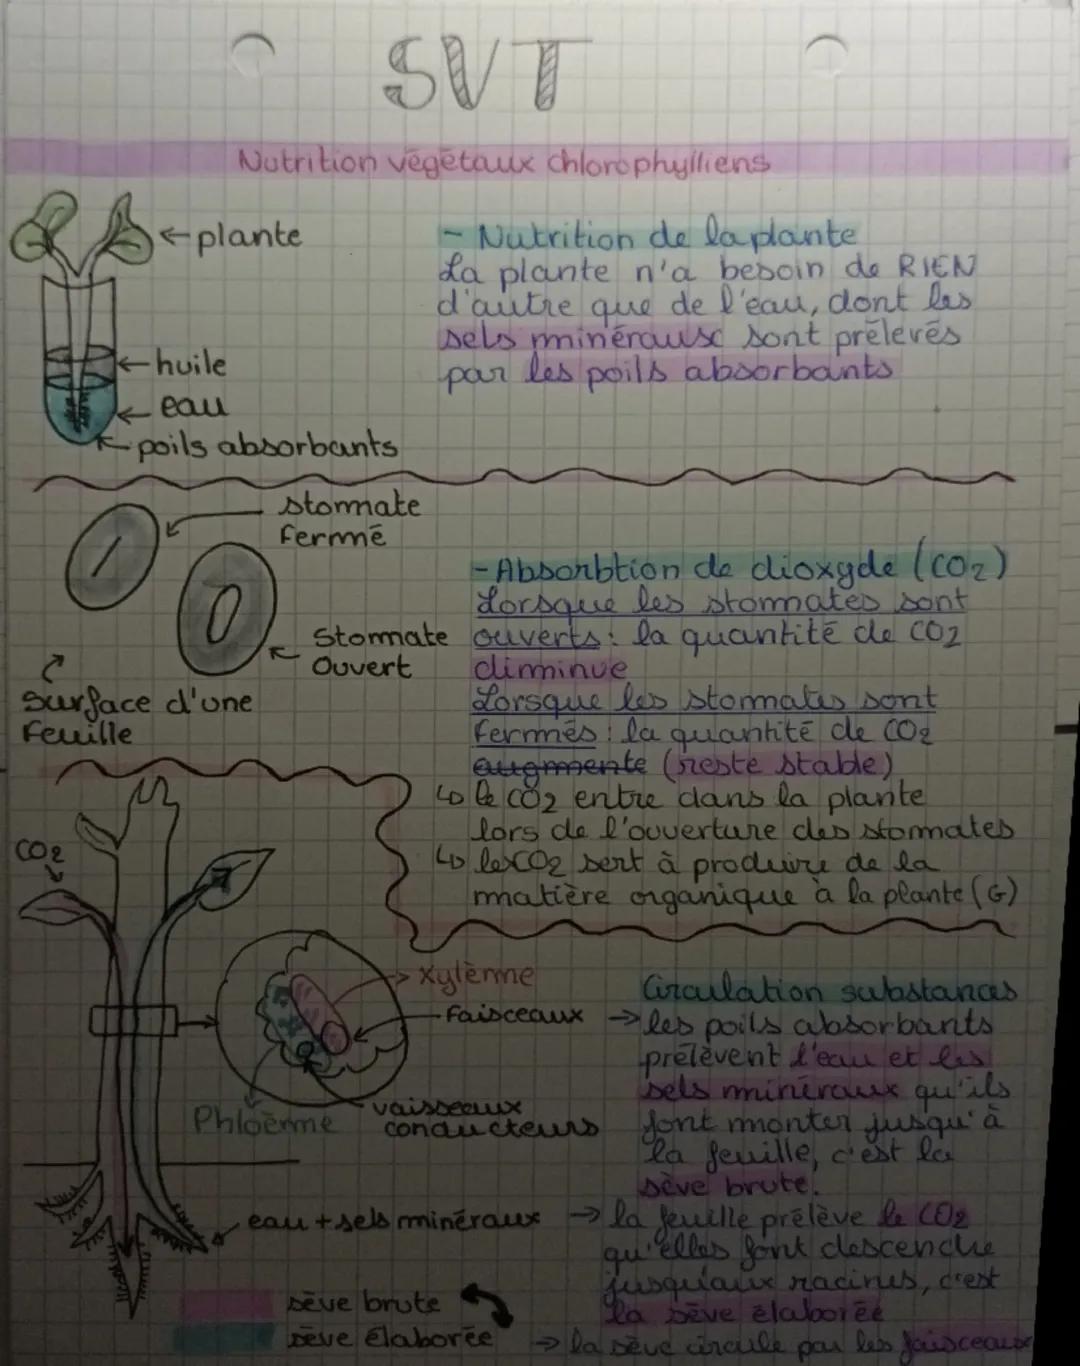 SVT
Nutrition végétaux chlorophylliens
plante
huile
eau
poils absorbants
- Nutrition de la plante
La plante n'a besoin de RIEN
d'autre que de l'eau, dont les
sels minéraux sont prélevés
par les poils absorbants
stomate
fermé
Stomate
Ouvert
Surface d'une
Feuille
- Absorbtion de dioxyde (CO2)
Lorsque les stomates sont
ouverts : la quantité de CO2
diminue
Lorsque les stomates sont
fermés : la quantité de CO2
augmente (reste stable)
↳ le CO2 entre dans la plante
lors de l'ouverture des stomates
↳ les CO2 sert à produire de la
matière organique à la plante (G)
CO2
Xylème
Faisceaux
Phloème
vaisseaux
conducteurs
eau + sels minéraux
sève brute
sève élaborée
Circulation substances
→ les poils absorbants
prélèvent l'eau et les
sels minéraux qu'ils
font monter jusqu'à
la feuille, c'est la
sève brute.
→ la feuille prélève le CO2
qu'elles font descendre
jusqu'aux racines, c'est
la sève élaborée
→ la sève circule par les faisceaux